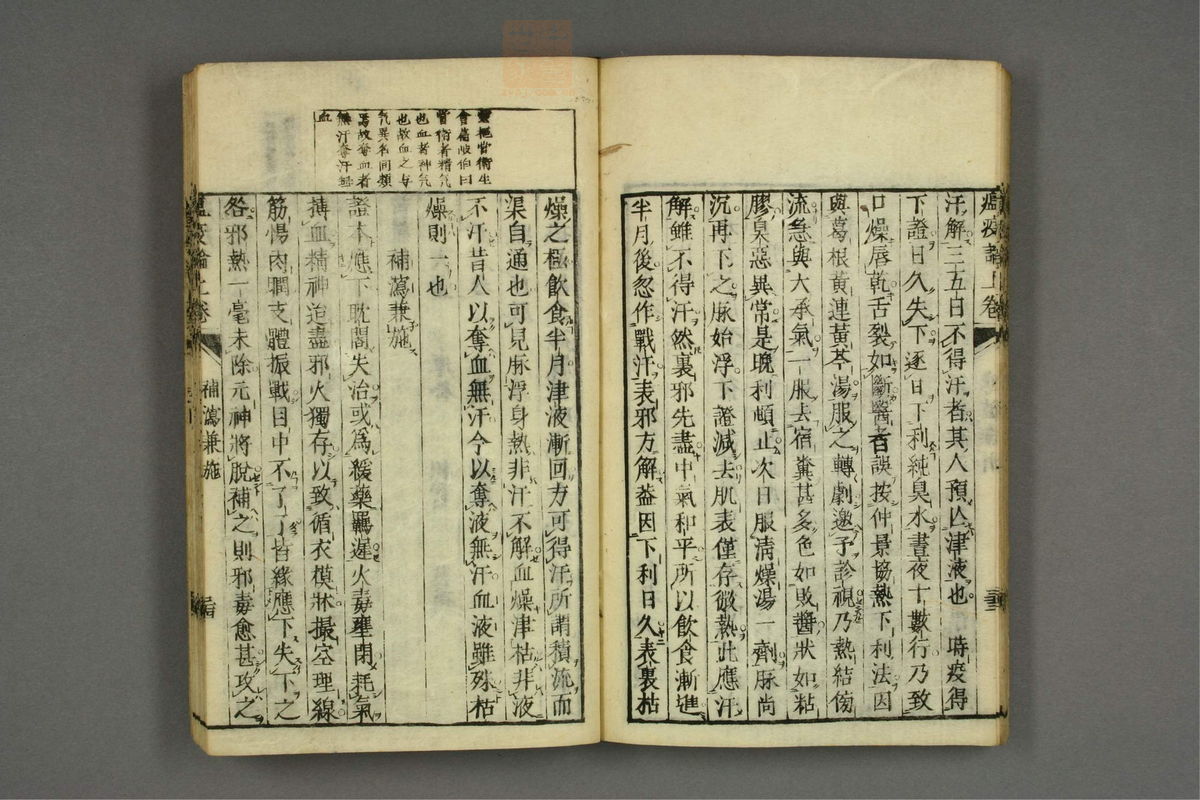 瘟疫論上卷
汗解三五日不得汗者其人預亾津液也　時疫得
下證日久失下逐日下利純臭水晝夜十數行乃致
口燥唇乾舌裂如斷醫者誤按仲景協熱下利法因
與葛根黃連黃芩湯服之轉劇邀予診視乃熱結傍
流急與大承氣一服去宿糞甚多色如敗醬狀如粘
膠臭惡異常是晚利頓止次日服清燥湯一劑脉尚
沉再下之脉始浮下證減去肌表僅存微熱此應汗
解雖不得汗然裏邪先盡中氣和平所以飲食漸進
半月後忽作戰汗表邪方解蓋因下利日久表裏枯
靈樞營衛生
會篇岐伯曰
營衛者精气
也血者神气
也故血之與
气異名同類
焉故奪血者
無汗奪汗者
無血
燥之極飲食半月津液漸回方可得汗所謂積流而
渠自通也可見脉浮身熱非汗不解血燥津枯非液
不汗昔人以奪血無汗今以奪液無汗血液雖殊枯
燥則一也
補瀉兼施
證本應下耽閣失治或爲緩藥羈遲火毒壅閉耗氣
搏血精神殆盡邪火獨存以致循衣摸牀撮空理線
筋惕肉瞤支體振戰目中不了了皆緣應下失下之
咎邪熱一毫未除元神將脫補之則邪毒愈甚攻之
瘟疫論上卷
補瀉兼施